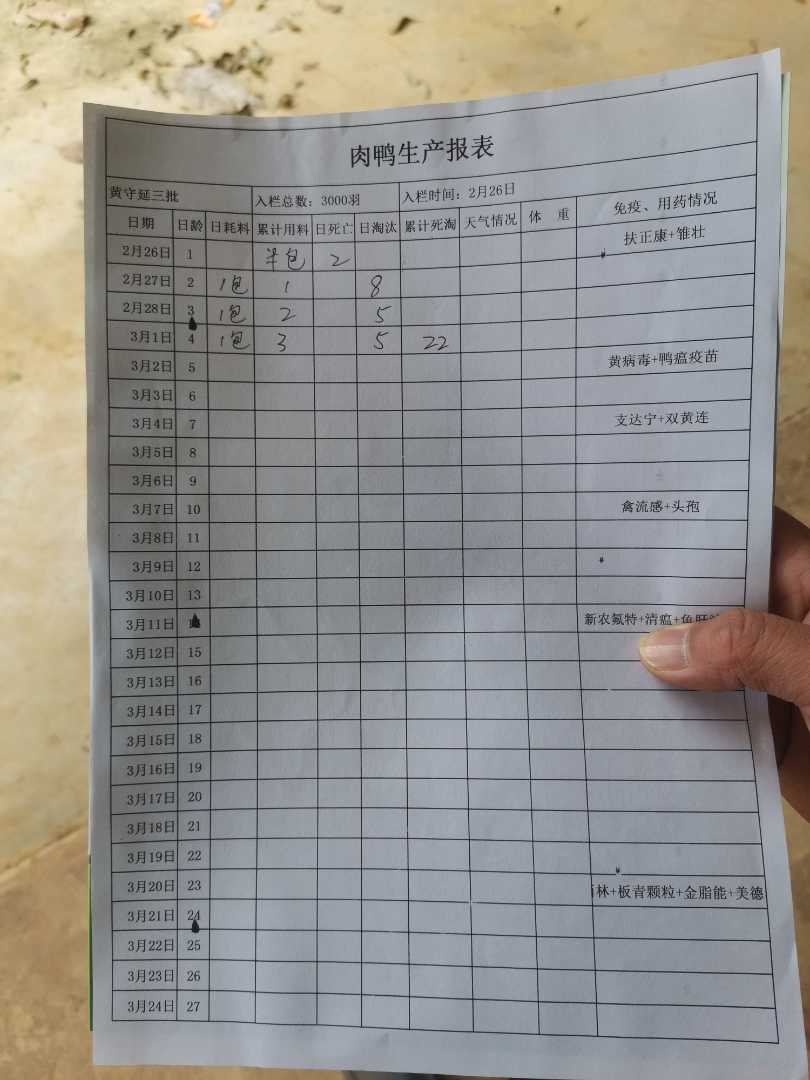 肉鸭生产报表
黄守延三批 入栏总数：3000羽 入栏时间：2月26日
日期 日龄 日耗料 累计用料 日死亡 日淘汰 累计死淘 天气情况 体 重 免疫、用药情况
2月26日 1 半包 2 扶正康+雏壮
2月27日 2 1包 1 8
2月28日 3 1包 2 5
3月1日 4 1包 3 5 22
3月2日 5 黄病毒+鸭瘟疫苗
3月3日 6
3月4日 7 支达宁+双黄连
3月5日 8
3月6日 9
3月7日 10 禽流感+头孢
3月8日 11
3月9日 12
3月10日 13
3月11日 新农氟特+清瘟+鱼肝
3月12日 15
3月13日 16
3月14日 17
3月15日 18
3月16日 19
3月17日 20
3月18日 21
3月19日 22
3月20日 23 林+板青颗粒+金脂能+美德
3月21日 24
3月22日 25
3月23日 26
3月24日 27